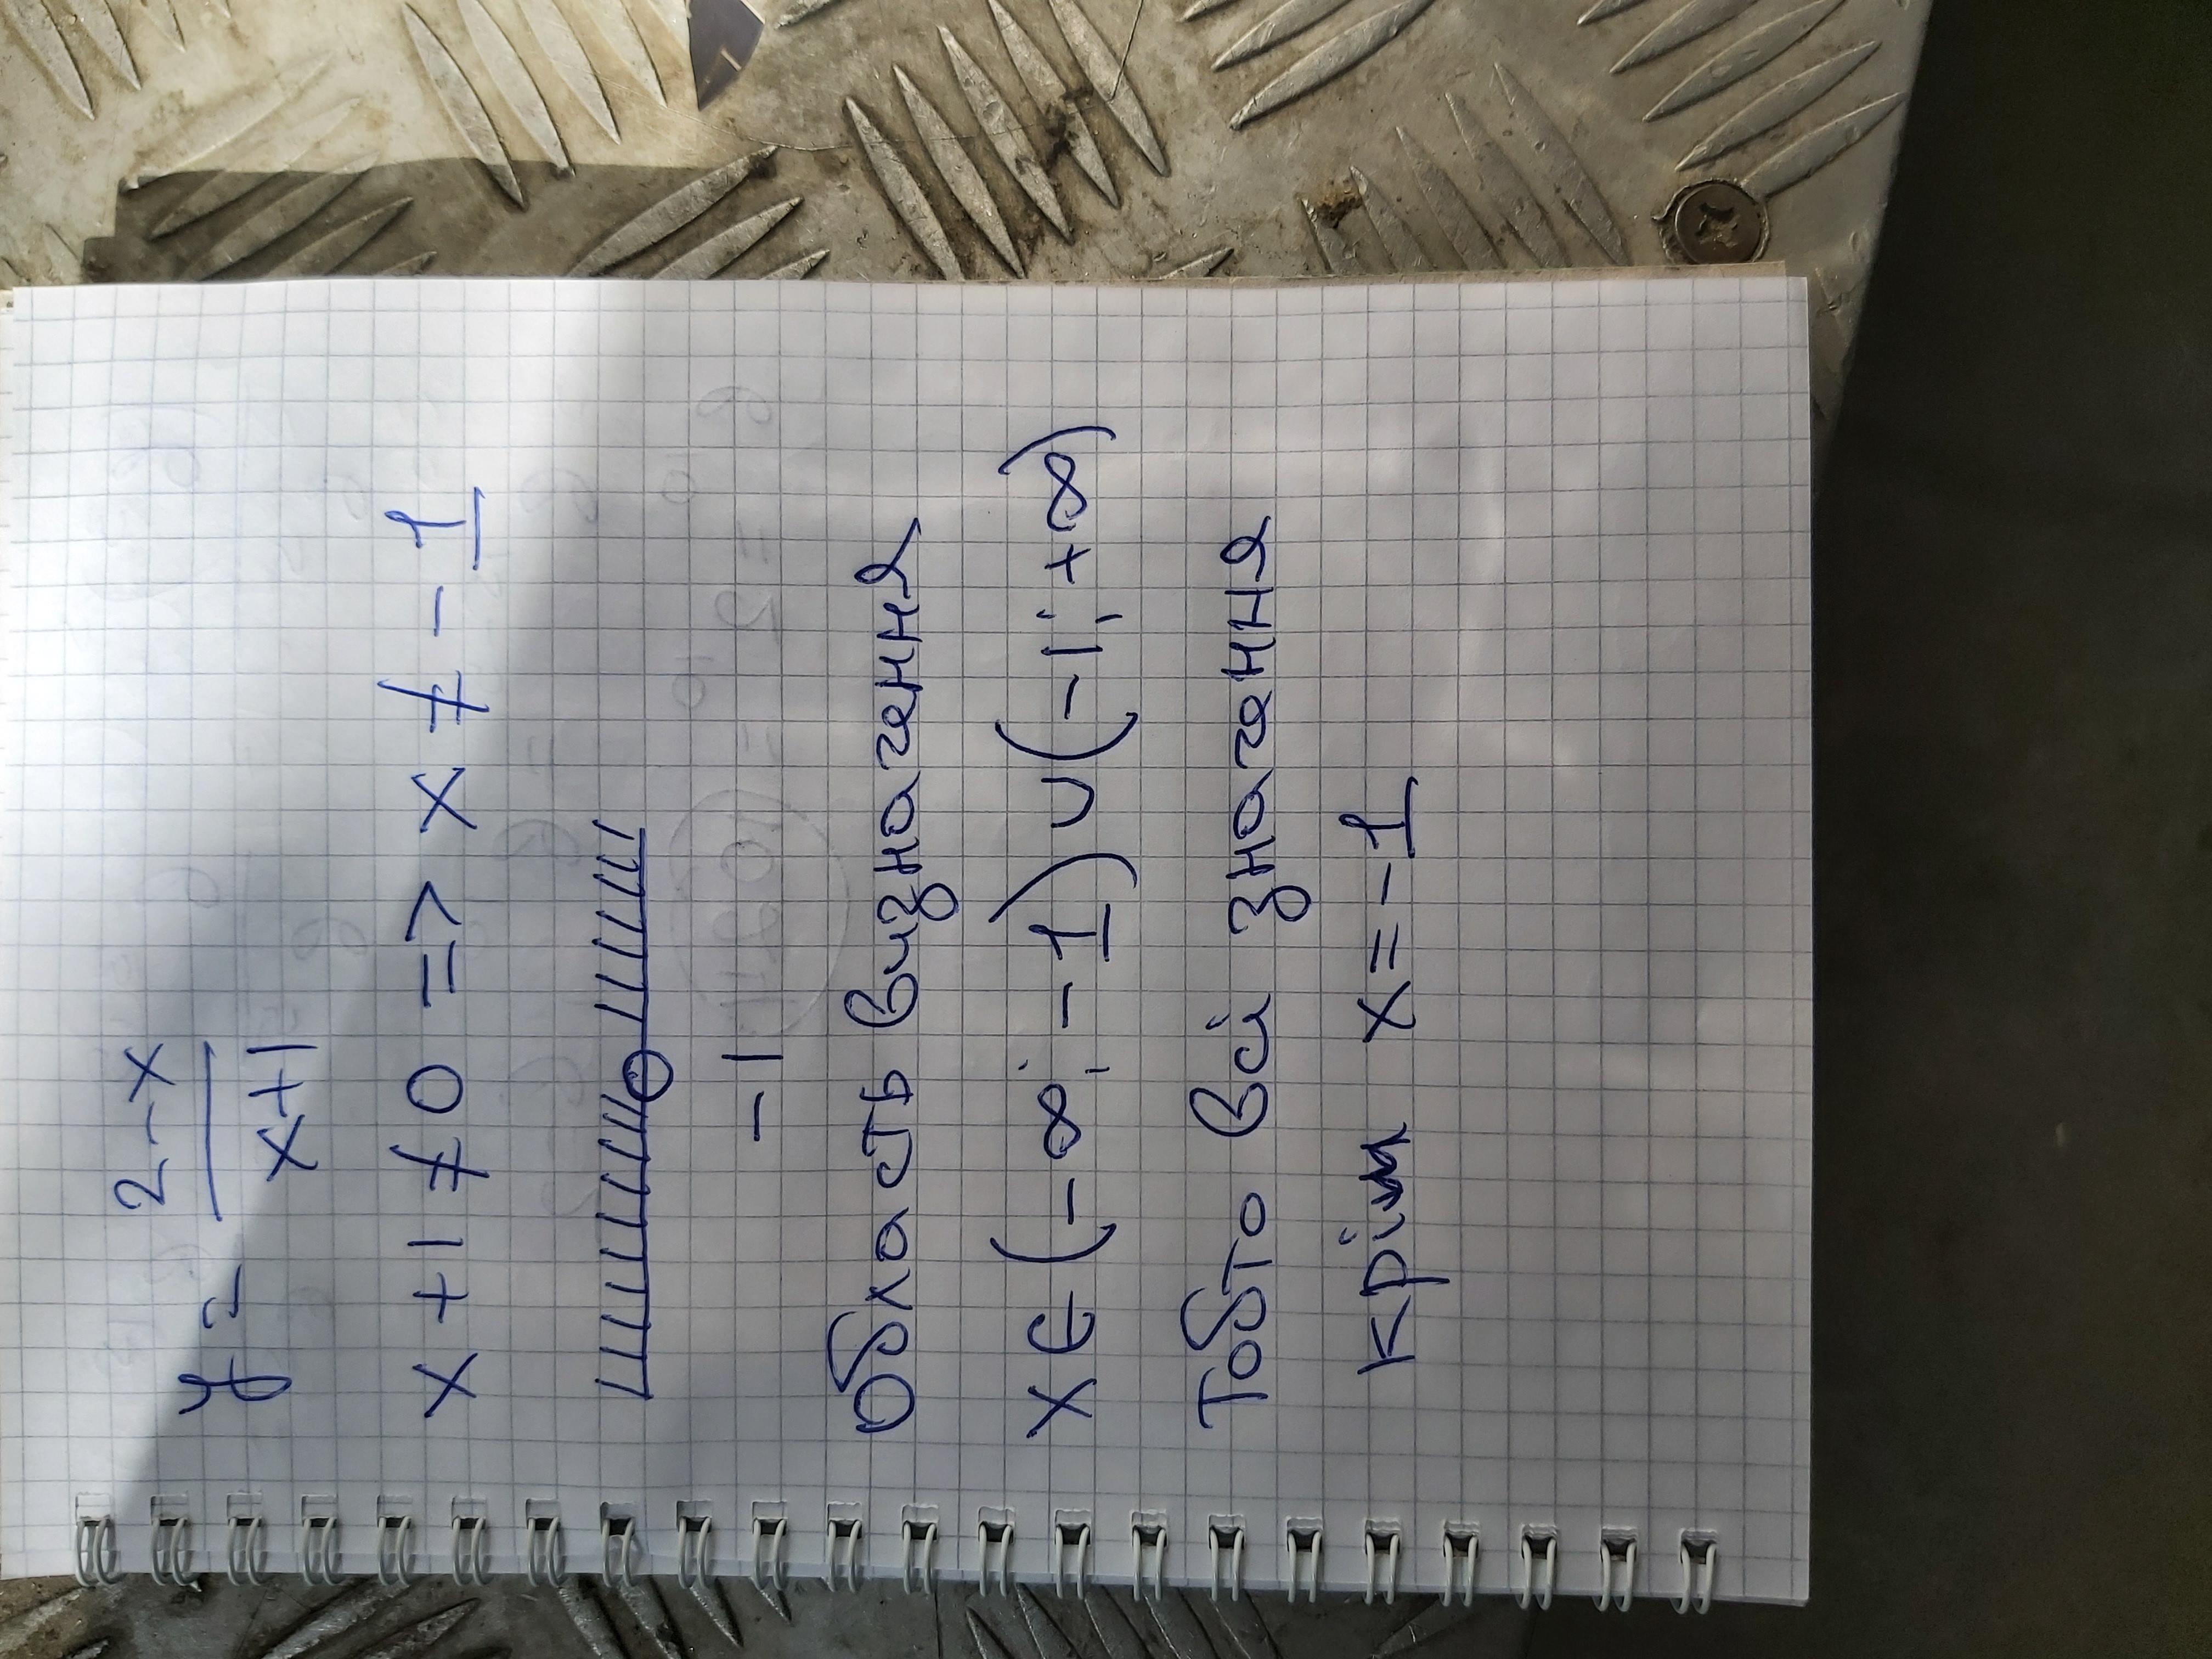 y = 2-x / x+1
x + 1 ≠ 0 => x ≠ - 1
-1
Область визначення
x ∈ (- ∞; - 1) ∪ (-1; +∞)
Тобто всі значення
крім x = -1